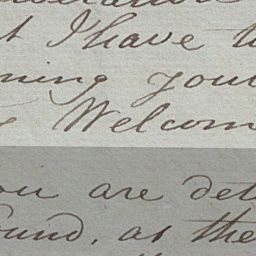 I have
ning your
Welcom
ou are det
ound, as the